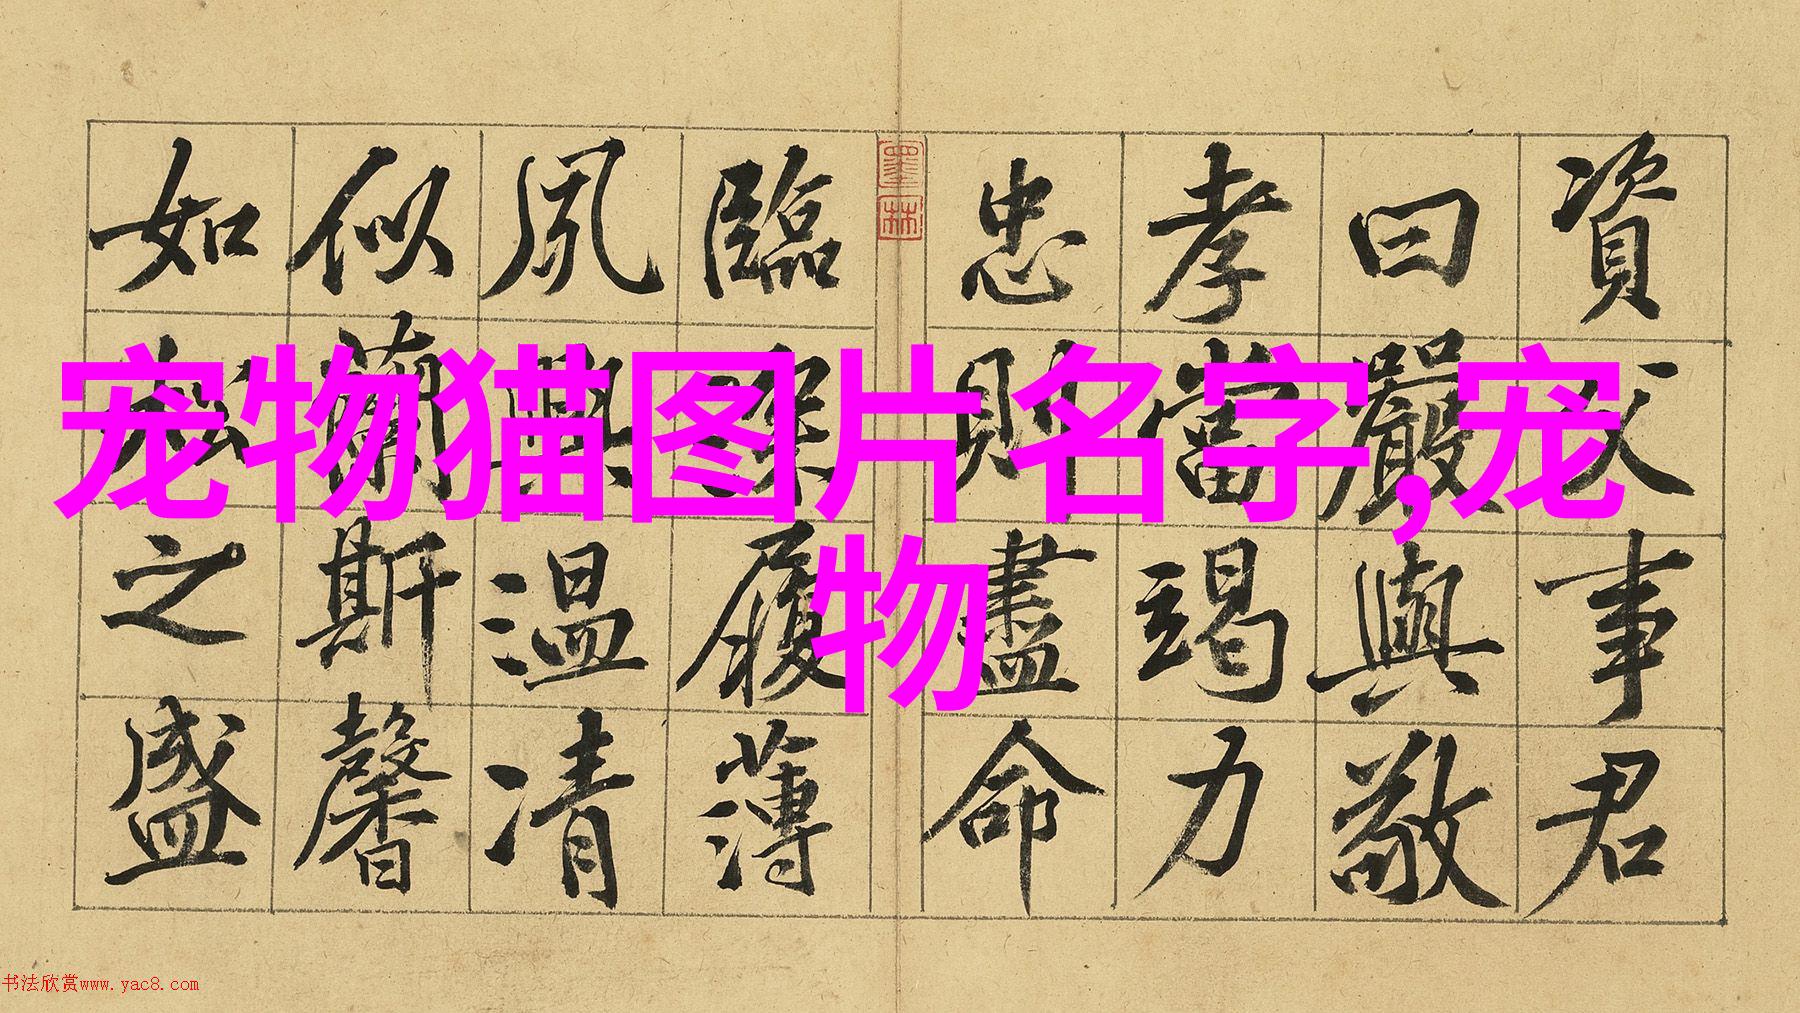 宠物猫图片名字,宠
物
資父事君
曰嚴與敬
孝當竭力
忠則盡命
墨林
臨深履薄
夙興温凊
似蘭斯馨
如松之盛
书法欣赏www.yac8.com